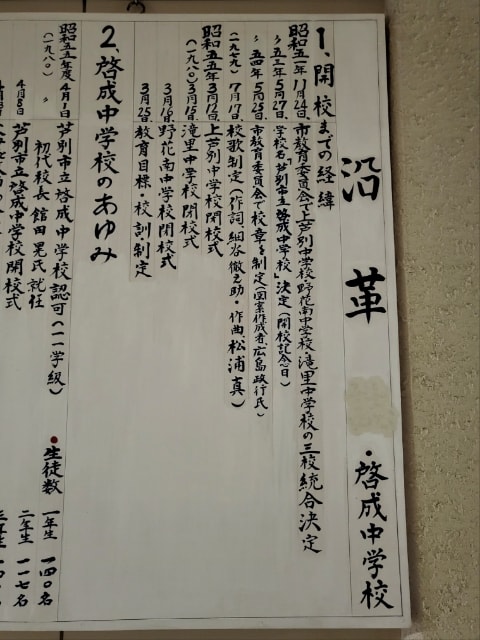 沿革 ・啓成中学校
1、開校までの経緯
昭和五一年 11月24日 市教育委員会で上芦別中学校・野花南中学校・滝里中学校の三校統合決定
〃 五三年 5月27日 学校名「芦別市立啓成中学校」決定(開校記念日)
〃 五四年 5月25日 市教育委員会で校章を制定(図案作成者、広島政行氏)
(一九七九) 7月17日 校歌制定(作詞、細谷徹之助・作曲、松浦真)
昭和五五年 3月12日 上芦別中学校閉校式
(一九八〇) 3月15日 滝里中学校閉校式
3月16日 野花南中学校閉校式
3月25日 教育目標・校訓制定
2、啓成中学校のあゆみ
昭和五五年度 4月1日 芦別市立啓成中学校認可(一一学級) ・生徒数 一年生 一四〇名
(一九八〇) 〃 初代校長 館田晃氏 就任 二年生 一一七名
4月8日 芦別市立啓成中学校開校式 三年生